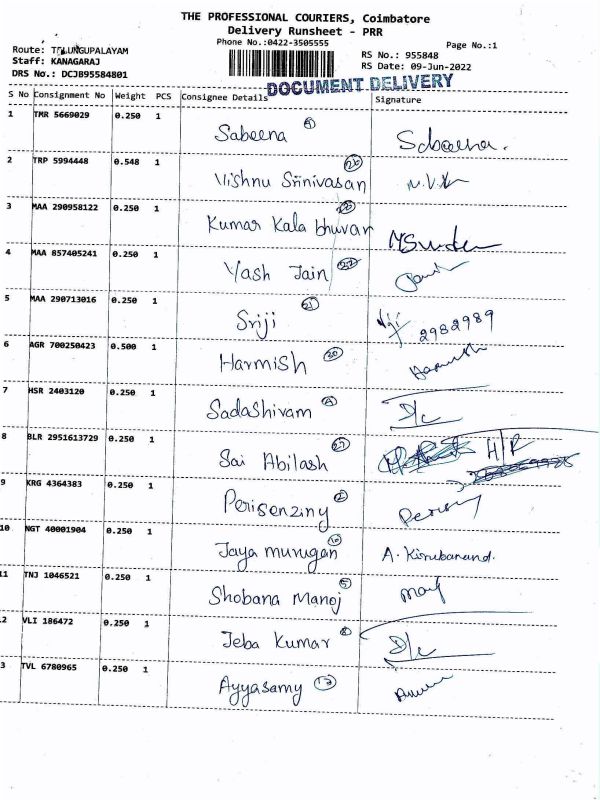 THE PROFESSIONAL COURIERS, Coimbatore
Delivery Runsheet - PRR
Phone No.:0422-3505555
Page No.:1
Route: TELUNGUPALAYAM
RS No.: 955848
Staff: KANAGARAJ
RS Date: 09-Jun-2022
DRS No.: DCJB95584801
DOCUMENT DELIVERY
S No Consignment No Weight PCS Consignee Details Signature
1 TMR 5669029 0.250 1
Sabeena Sabeena.
2 TRP 5994448 0.548 1
Vishnu Srinivasan 26
3 MAA 290958122 0.250 1
Kumar Kala bhuvan
4 MAA 857405241 0.250 1
Yash Jain 22
5 MAA 290713016 0.250 1
Sriji 21 2982989
6 AGR 700250423 0.500 1
Harmish 20
7 HSR 2403120 0.250 1
Sadashivam D/c
8 BLR 2951613729 0.250 1
Sai Abilash 27 H/P
9 KRG 4364383 0.250 1
Perisenziny
10 NGT 40001904 0.250 1
Jaya murugan 10 A. Kirubanand.
11 TNJ 1046521 0.250 1
Shobana Manoj
2 VLI 186472 0.250 1
Jeba Kumar D/c
3 TVL 6780965 0.250 1
Ayyasamy